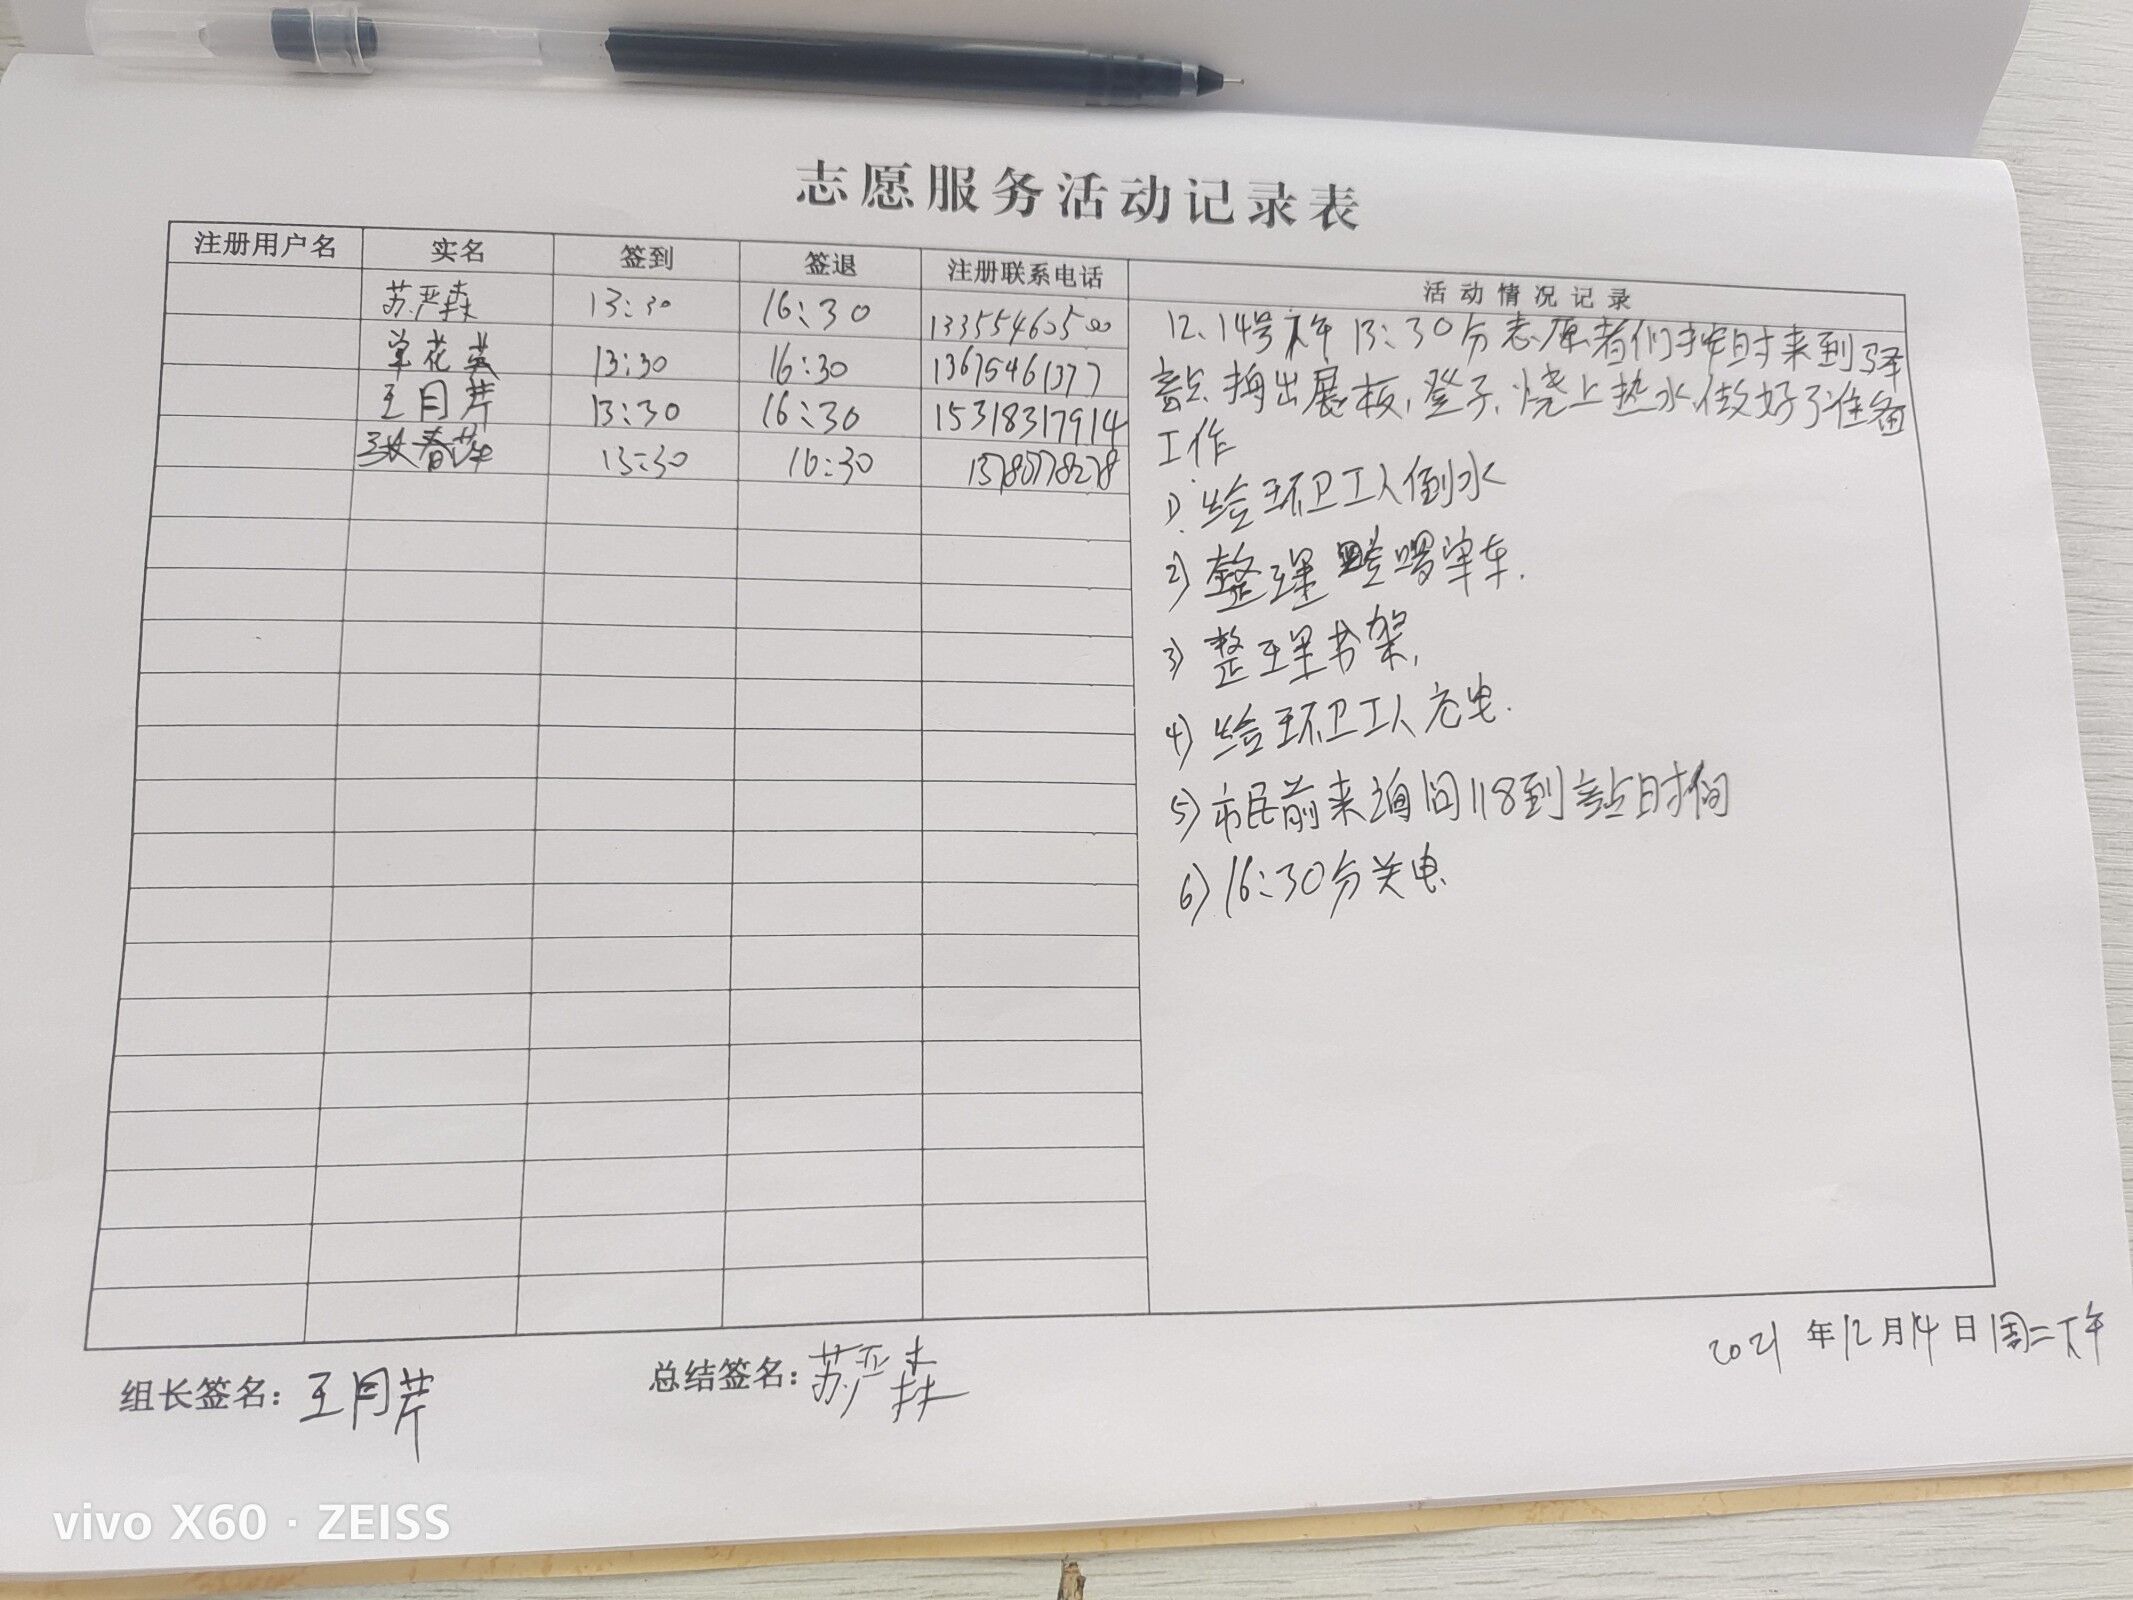 志愿服务活动记录表
注册用户名 实名 签到 签退 注册联系电话 活动情况记录
苏严森 13:30 16:30 13355460500
单花英 13:30 16:30 13675461377
王月芹 13:30 16:30 15318317914
春萍 13:30 16:30
12.14号下午13:30分志愿者们按时来到驿
站,搬出展板,凳子,烧上热水,做好了准备
工作
1)给环卫工人倒水
2)整理 单车.
3)整理书架,
4)给环卫工人充电.
5)市民前来询问118到站时间
6)16:30分关电
2021年12月14日周二下午
组长签名:王月芹 总结签名:苏严森
vivo X60 · ZEISS